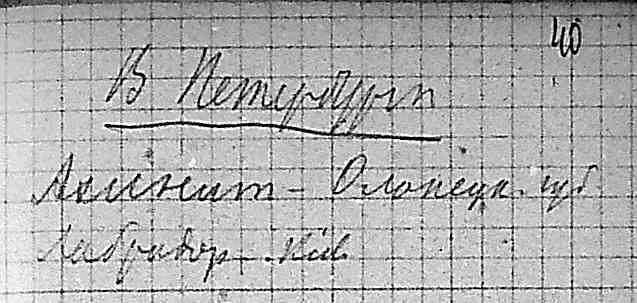 40
В Петербургѣ
Аксинит – Олонецк. губ
Лабрадор – Кіев